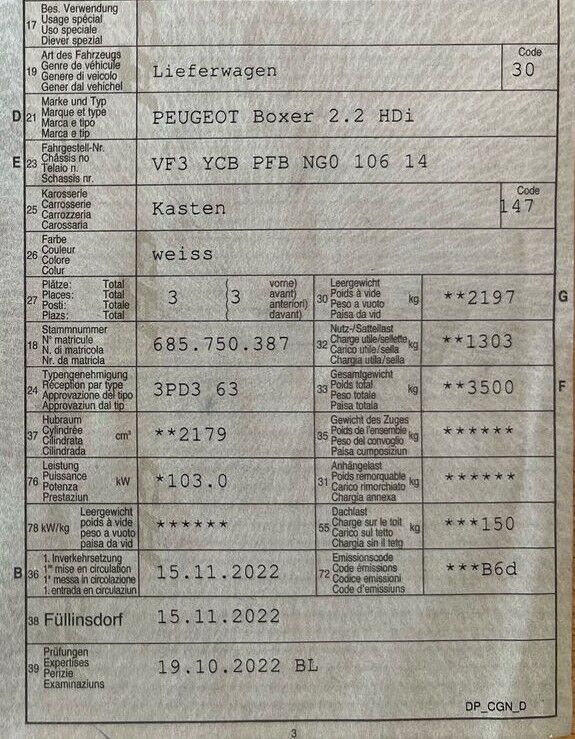 17 Bes. Verwendung
Usage spécial
Uso speciale
Diever spezial
19 Art des Fahrzeugs
Genre de véhicule
Genere di veicolo
Gener dal vehichel
Lieferwagen
Code
30
D 21 Marke und Typ
Marque et type
Marca e tipo
Marca e tip
PEUGEOT Boxer 2.2 HDi
E 23 Fahrgestell-Nr.
Châssis no
Telaio n.
Schassis nr.
VF3 YCB PFB NG0 106 14
25 Karosserie
Carrosserie
Carrozzeria
Carossaria
Kasten
Code
147
26 Farbe
Couleur
Colore
Colur
weiss
27 Plätze: Total
Places: Total
Posti: Totale
Plazs: Total
3 (3 vorne)
avant)
anteriori)
davant)
30 Leergewicht
Poids à vide
Peso a vuoto
Paisa da vid
kg **2197 G
18 Stammnummer
N° matricule
N. di matricola
Nr. da matricla
685.750.387
32 Nutz-/Sattellast
Charge utile/sellette
Carico utile/sella
Chargia utila/sella
kg **1303
24 Typengenehmigung
Réception par type
Approvazione del tipo
Approvaziun dal tip
3PD3 63
33 Gesamtgewicht
Poids total
Peso totale
Paisa totala
kg **3500 F
37 Hubraum
Cylindrée
Cilindrata
Cilindrada
cm³ **2179
35 Gewicht des Zuges
Poids de l'ensemble
Peso del convoglio
Paisa cumposiziun
kg ******
76 Leistung
Puissance
Potenza
Prestaziun
kW *103.0
31 Anhängelast
Poids remorquable
Carico rimorchiato
Chargia annexa
kg ******
78 kW/kg Leergewicht
poids à vide
peso a vuoto
paisa da vid
******
55 Dachlast
Charge sur le toit
Carico sul tetto
Chargia sin il tetg
kg ***150
B 36 1. Inverkehrsetzung
1re mise en circulation
1a messa in circolazione
1. entrada en circulaziun
15.11.2022
72 Emissionscode
Code émissions
Codice emissioni
Code d'emissiuns
***B6d
38 Füllinsdorf 15.11.2022
39 Prüfungen
Expertises
Perizie
Examinaziuns
19.10.2022 BL
DP_CGN_D
3